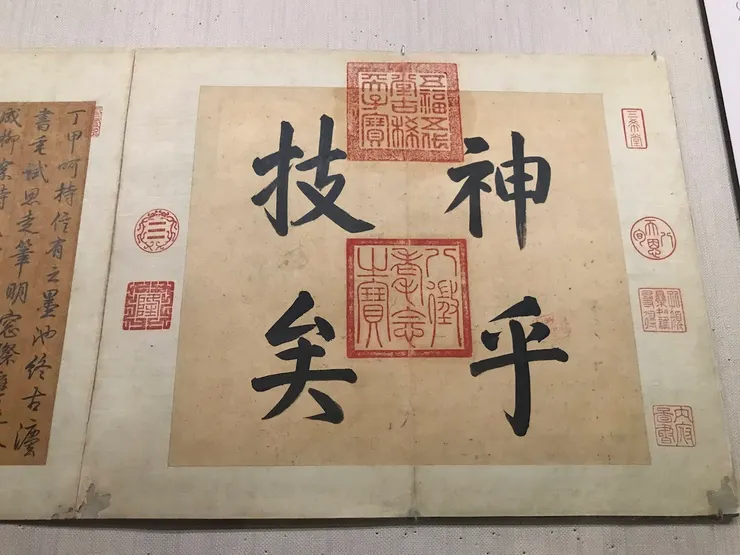 神乎
技矣
五福五代
堂古稀
天子寶
八徵
耄念
之寶
三希堂
天恩八旬
內府
圖書
丁甲呵持信有之墨池終古
試思走筆明窗際